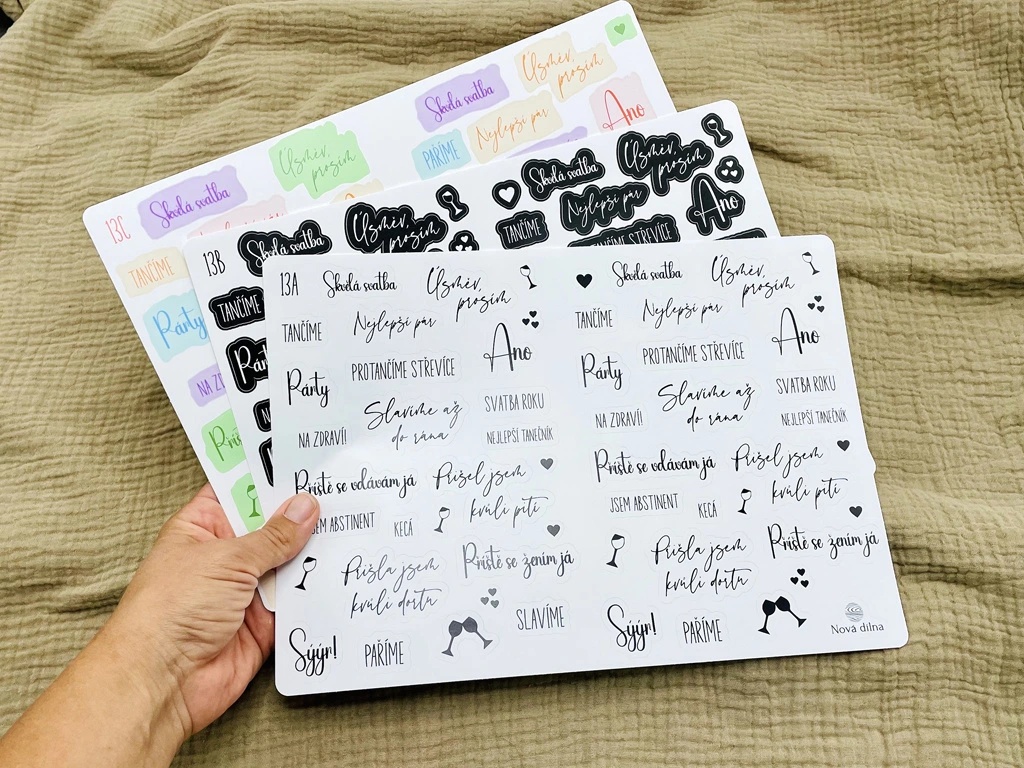 Skvělá svatba
Úsměv,
prosím
Úsměv,
prosím
Skvělá svatba
Nejlepší pár
Ano
PAŘÍME
13C
TANČÍME
Párty
NA ZD
13B
Skvělá svatba
Úsměv,
prosím
Skvělá svatba
Úsměv,
prosím
TANČÍME
Nejlepší pár
Ano
TANČÍME STŘEVÍCE
TANČÍME
13A
Skvělá svatba
Úsměv,
prosím
TANČÍME
Nejlepší pár
Ano
Párty
PROTANČÍME STŘEVÍCE
Slavíme až
do rána
SVATBA ROKU
NA ZDRAVÍ!
NEJLEPŠÍ TANEČNÍK
Příště se vdávám já
Přišel jsem
kvůli pití
JSEM ABSTINENT
KECÁ
Přišla jsem
kvůli dortu
Příště se žením já
Sýýr!
PAŘÍME
SLAVÍME
Skvělá svatba
Úsměv,
prosím
TANČÍME
Nejlepší pár
Ano
Párty
PROTANČÍME STŘEVÍCE
Slavíme až
do rána
SVATBA ROKU
NA ZDRAVÍ!
NEJLEPŠÍ TANEČNÍK
Příště se vdávám já
Přišel jsem
kvůli pití
JSEM ABSTINENT
KECÁ
Přišla jsem
kvůli dortu
Příště se žením já
Sýýr!
PAŘÍME
Nová dílna